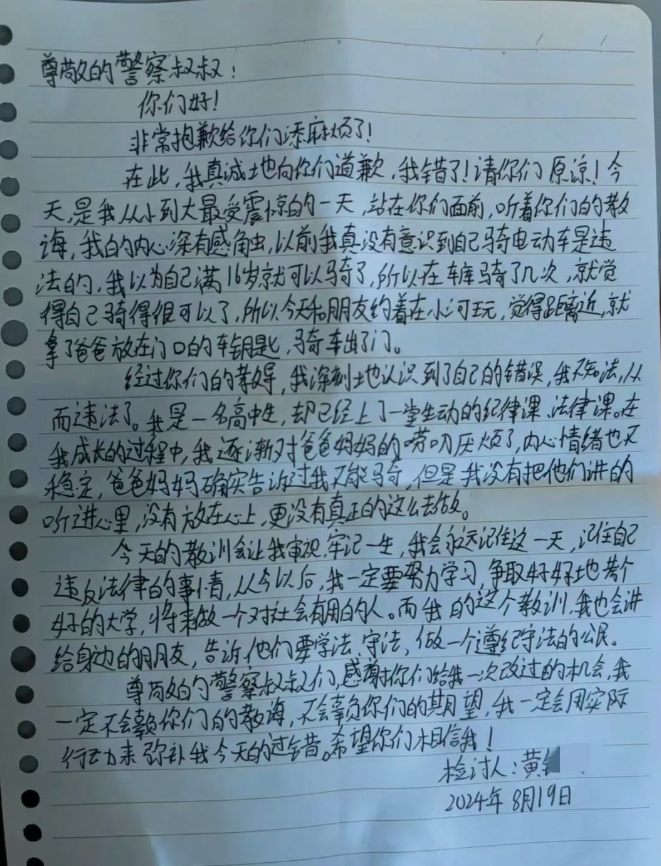 尊敬的警察叔叔：
你们好！
非常抱歉给你们添麻烦了！
在此，我真诚地向你们道歉，我错了！请你们原谅！今
天，是我从小到大最受震惊的一天，站在你们面前，听着你们的教
诲，我的内心深有感触，以前我真没有意识到自己骑电动车是违
法的，我以为自己满16岁就可以骑了，所以在车库骑了几次，就觉
得自己骑得很可以了，所以今天和朋友约着在小河玩，觉得距离近，就
拿了爸爸放在门口的车钥匙，骑车出了门。
经过你们的教诲，我深刻地认识到了自己的错误，我不知法，从
而违法了。我是一名高中生，却已经上了一堂生动的纪律课、法律课。在
我成长的过程中，我逐渐对爸爸妈妈的唠叨厌烦了，内心情绪也不
稳定，爸爸妈妈确实告诉过我不能骑，但是我没有把他们讲的
听进心里，没有放在心上，更没有真正的这么去做。
今天的教训会让我审视，牢记一生，我会永远记住这一天，记住自己
违反法律的事情，从今以后，我一定要努力学习，争取好好地考个
好的大学，将来做一个对社会有用的人。而我的这个教训，我也会讲
给身边的朋友，告诉他们要学法、守法，做一个遵纪守法的公民。
尊敬的警察叔叔们，感谢你们给我一次改过的机会，我
一定不会辜负你们的教诲，不会辜负你们的期望，我一定会用实际
行动来弥补我今天的过错。希望你们相信我！
检讨人：黄
2024年8月19日